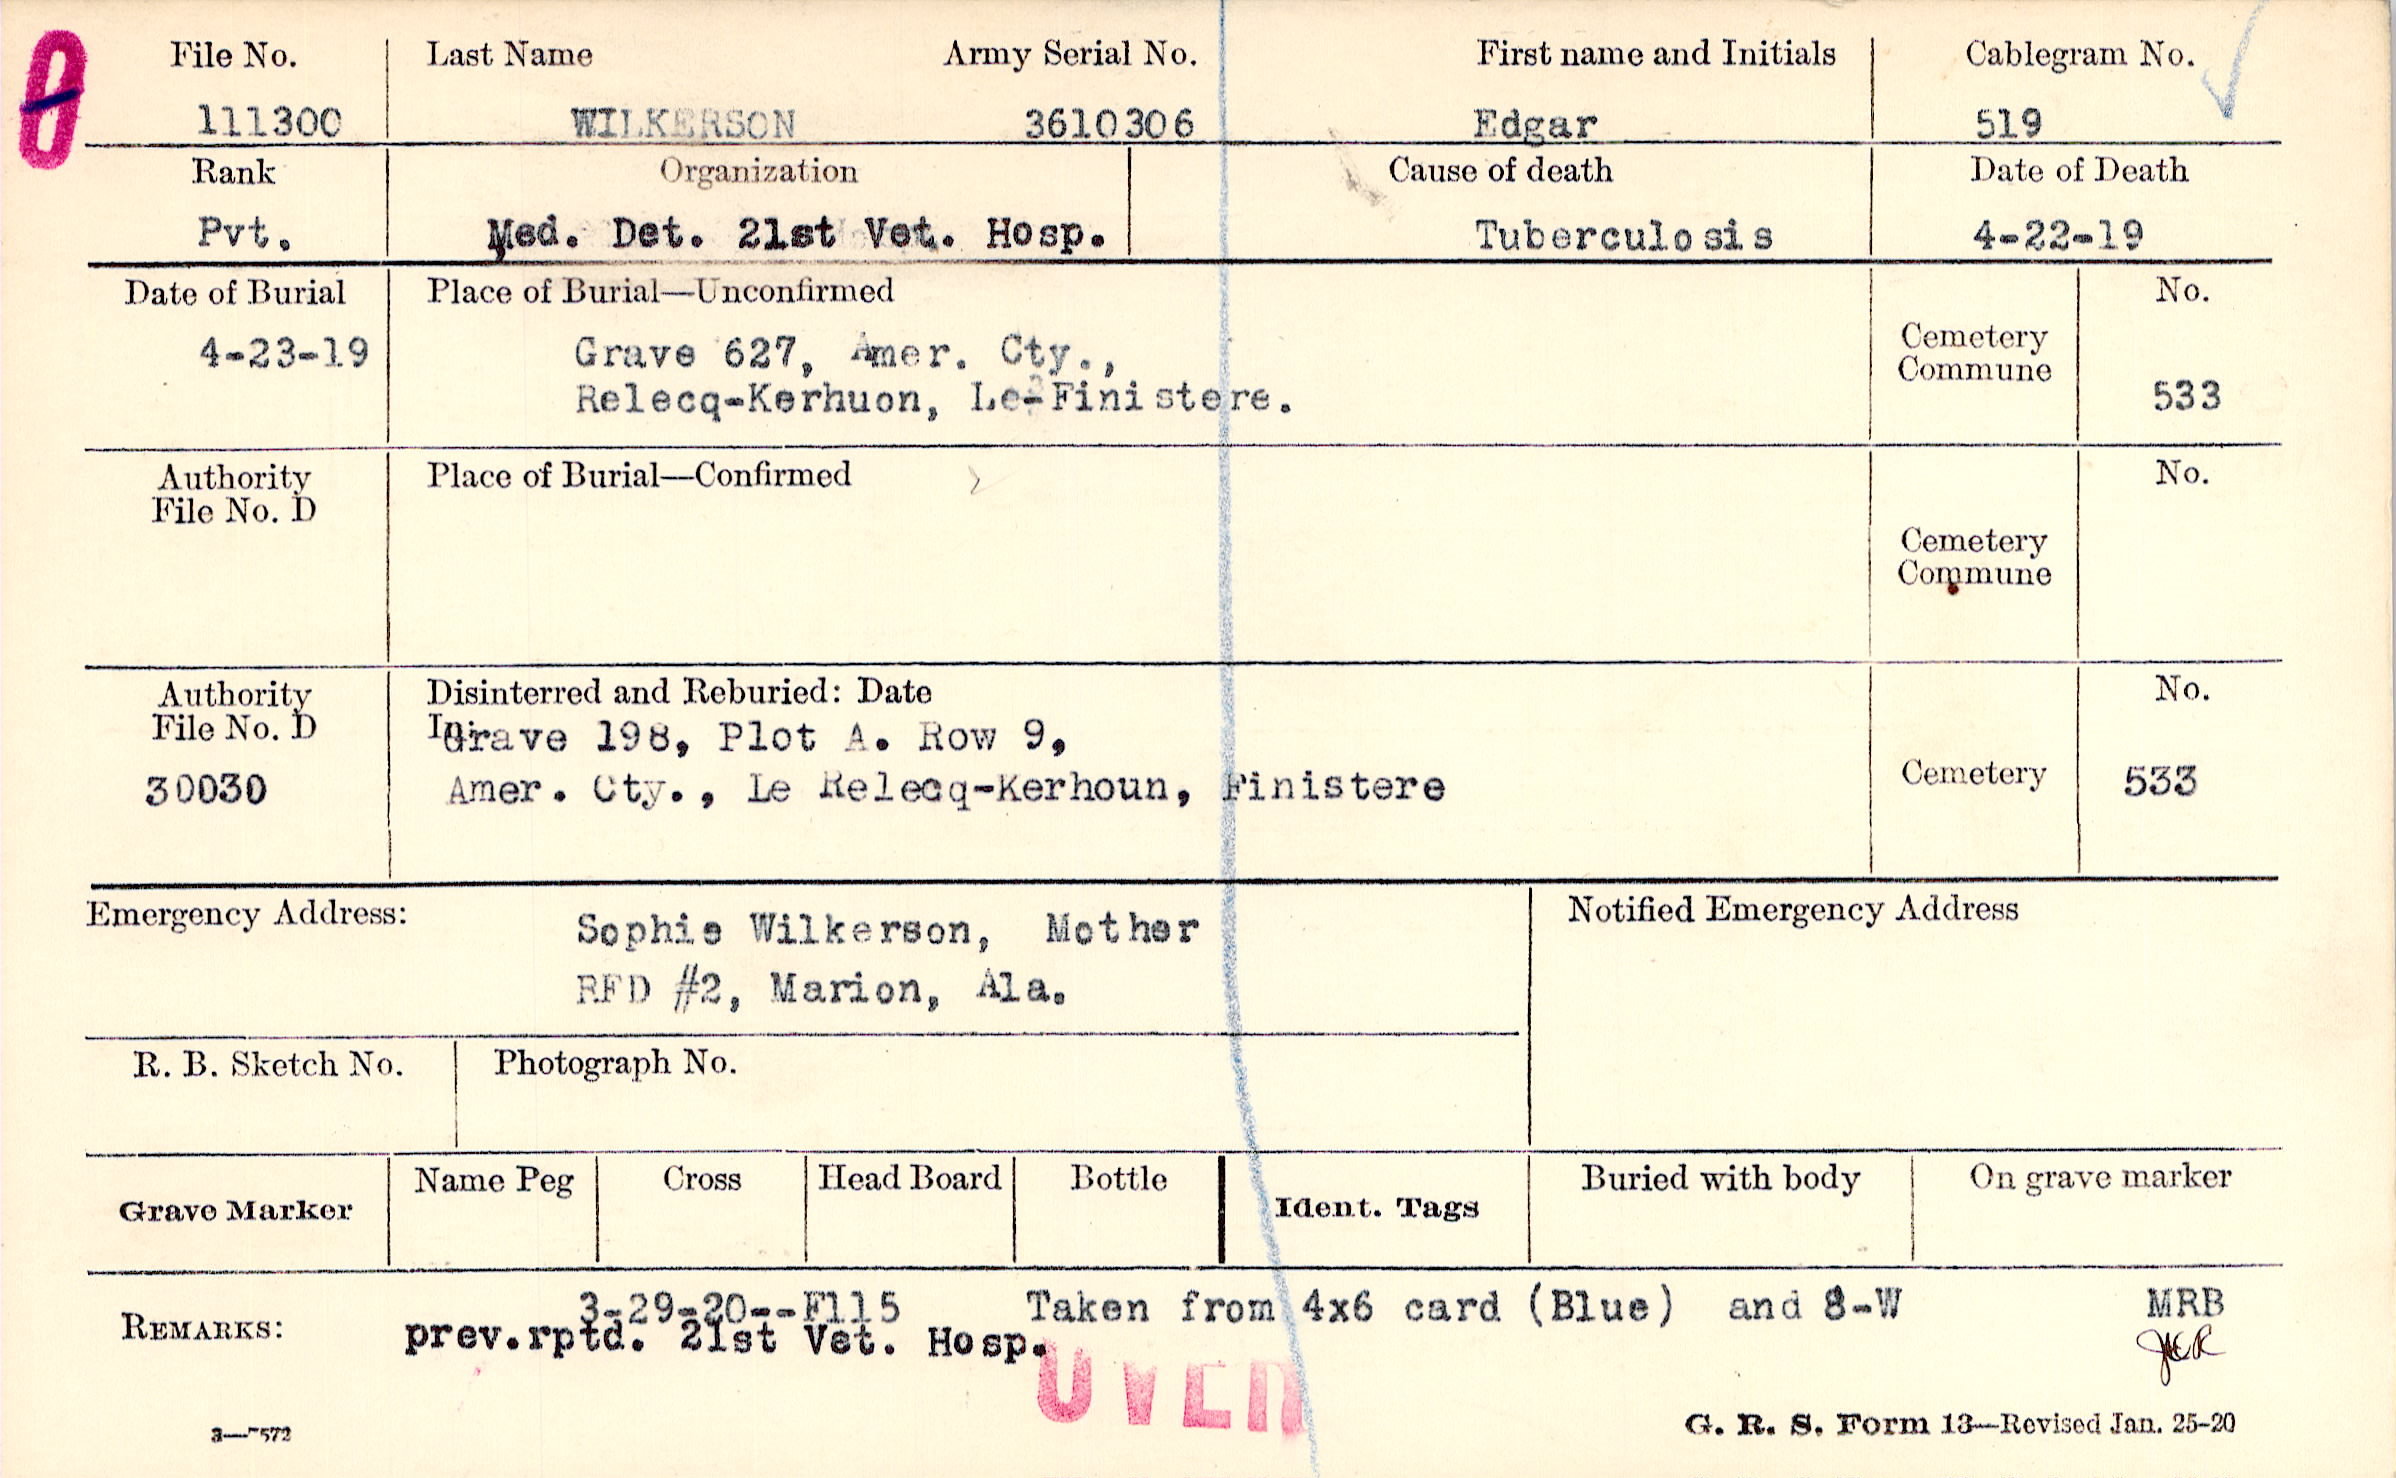 0
File No. Last Name Army Serial No. First name and Initials Cablegram No.
111300 WILKERSON 3610306 Edgar 519
Rank Organization Cause of death Date of Death
Pvt. Med. Det. 21st Vet. Hosp. Tuberculosis 4-22-19
Date of Burial Place of Burial—Unconfirmed No.
4-23-19 Grave 627, Amer. Cty., Cemetery
Commune
Relecq-Kerhuon, Le-Finistere. 533
Authority Place of Burial—Confirmed No.
File No. D
Cemetery
Commune
Authority Disinterred and Reburied: Date No.
File No. D In: Grave 198, Plot A. Row 9,
30030 Amer. Cty., Le Relecq-Kerhoun, Finistere Cemetery 533
Emergency Address: Sophie Wilkerson, Mother Notified Emergency Address
RFD #2, Marion, Ala.
R. B. Sketch No. Photograph No.
Grave Marker Name Peg Cross Head Board Bottle Ident. Tags Buried with body On grave marker
REMARKS: 3-29-20--F115 Taken from 4x6 card (Blue) and 8-W MRB
prev.rptd. 21st Vet. Hosp. JER
OVER
3—7572 G. R. S. Form 13—Revised Jan. 25-20